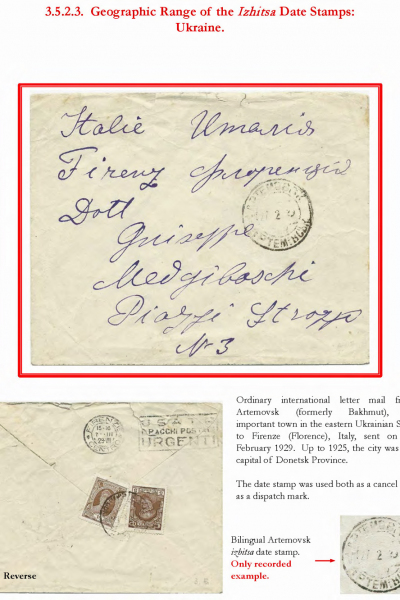 3.5.2.3. Geographic Range of the Izhitsa Date Stamps:
Ukraine.
Italie Италія
Firenz Флоренція
Dott
Guiseppe
Medgiboschi
Piazzi Strozzi
N 3
Ordinary international letter mail
Artemovsk (formerly Bakhmut),
important town in the eastern Ukrainian
to Firenze (Florence), Italy, sent on
February 1929. Up to 1925, the city was
capital of Donetsk Province.
The date stamp was used both as a cancel
as a dispatch mark.
PACCHI POSTALI
URGENTI
Bilingual Artemovsk
izhitsa date stamp.
Only recorded
example.
Reverse